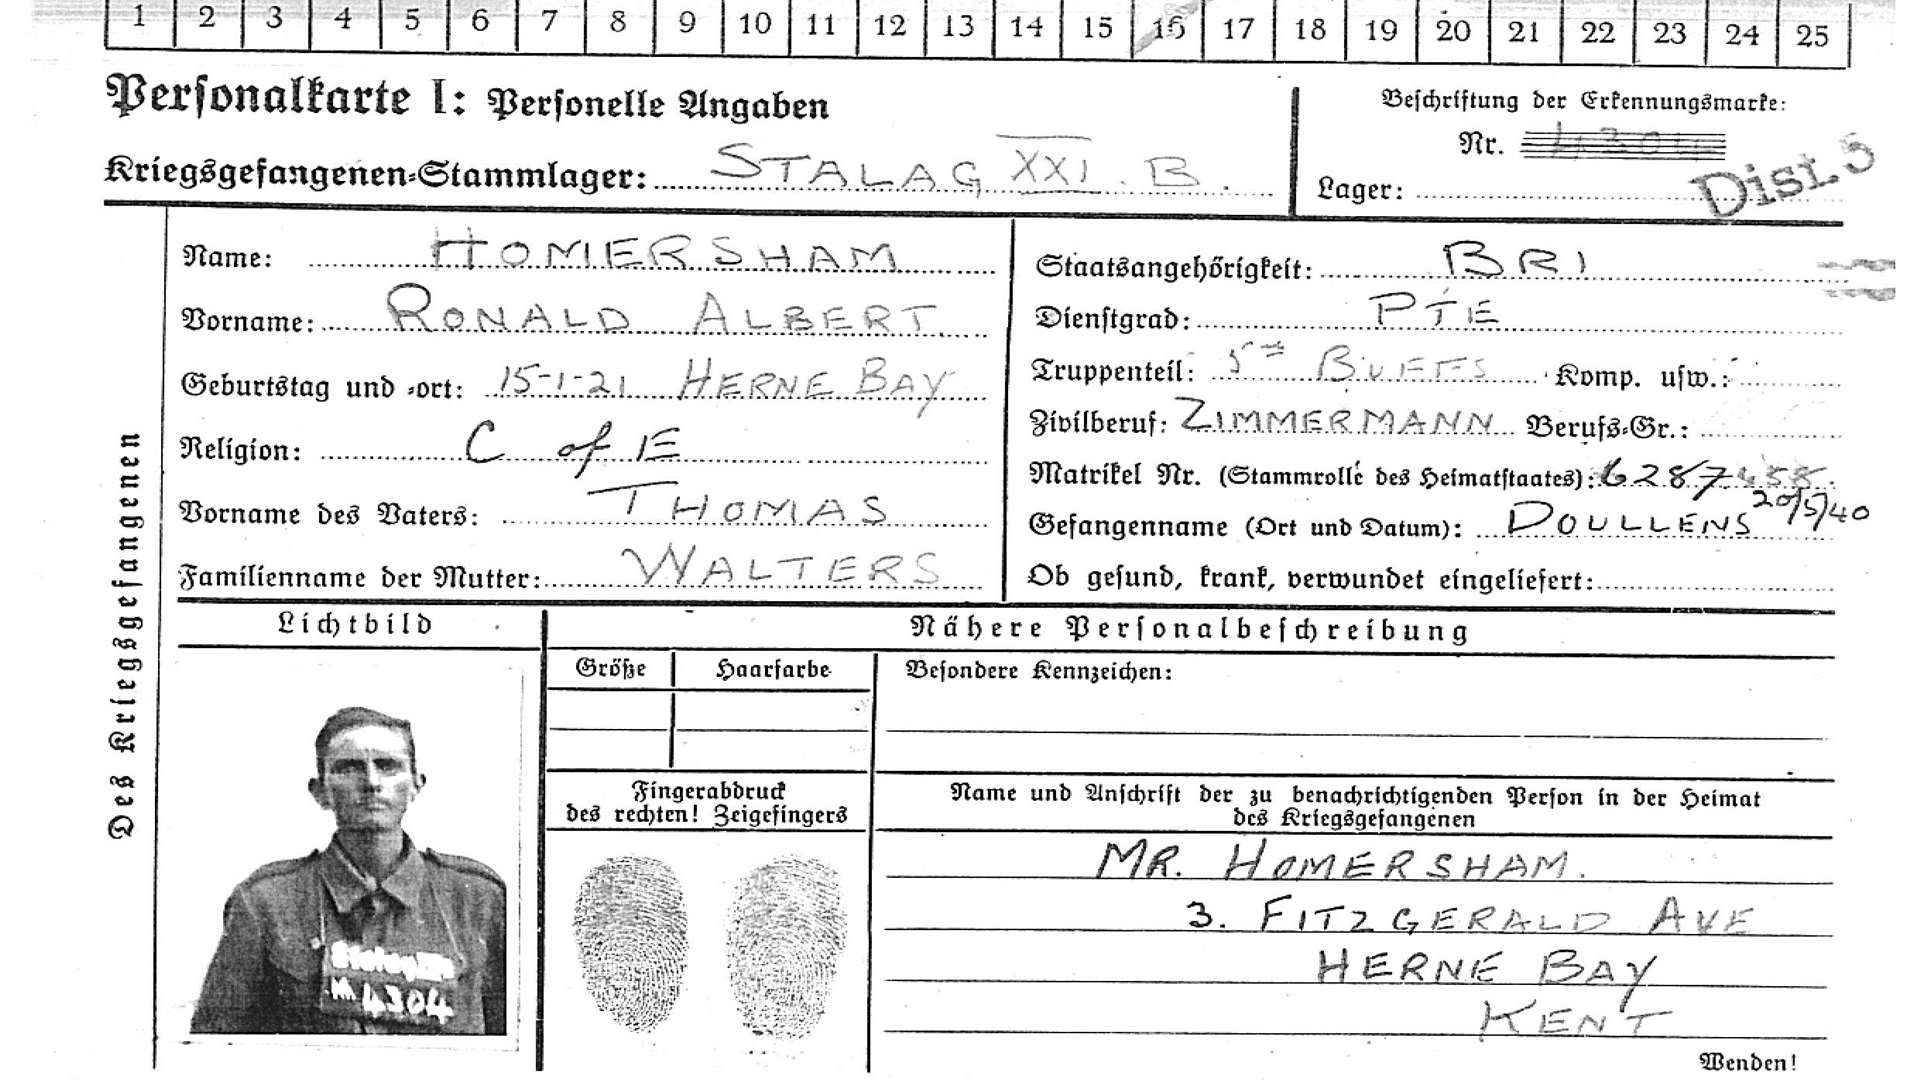 1 2 3 4 5 6 7 8 9 10 11 12 13 14 15 16 17 18 19 20 21 22 23 24 25
Personalkarte I: Personelle Angaben
Kriegsgefangenen-Stammlager: STALAG XXI. B.
Beschriftung der Erkennungsmarke:
Nr. 4304
Lager:
Dist. 5
Des Kriegsgefangenen
Name: HOMERSHAM
Vorname: RONALD ALBERT
Geburtstag und -ort: 15-1-21 HERNE BAY
Religion: C of E
Vorname des Vaters: THOMAS
Familienname der Mutter: WALTERS
Staatsangehörigkeit: BRI
Dienstgrad: PTE
Truppenteil: 5TH BUFFS Komp. usw.:
Zivilberuf: ZIMMERMANN Berufs-Gr.:
Matrikel Nr. (Stammrolle des Heimatstaates): 6287458
Gefangenname (Ort und Datum): DOULLENS 20/5/40
Ob gesund, krank, verwundet eingeliefert:
Lichtbild
4304
Nähere Personalbeschreibung
Größe Haarfarbe Besondere Kennzeichen:
Fingerabdruck
des rechten! Zeigefingers
Name und Anschrift der zu benachrichtigenden Person in der Heimat
des Kriegsgefangenen
MR. HOMERSHAM.
3. FITZGERALD AVE
HERNE BAY
KENT
Wenden!